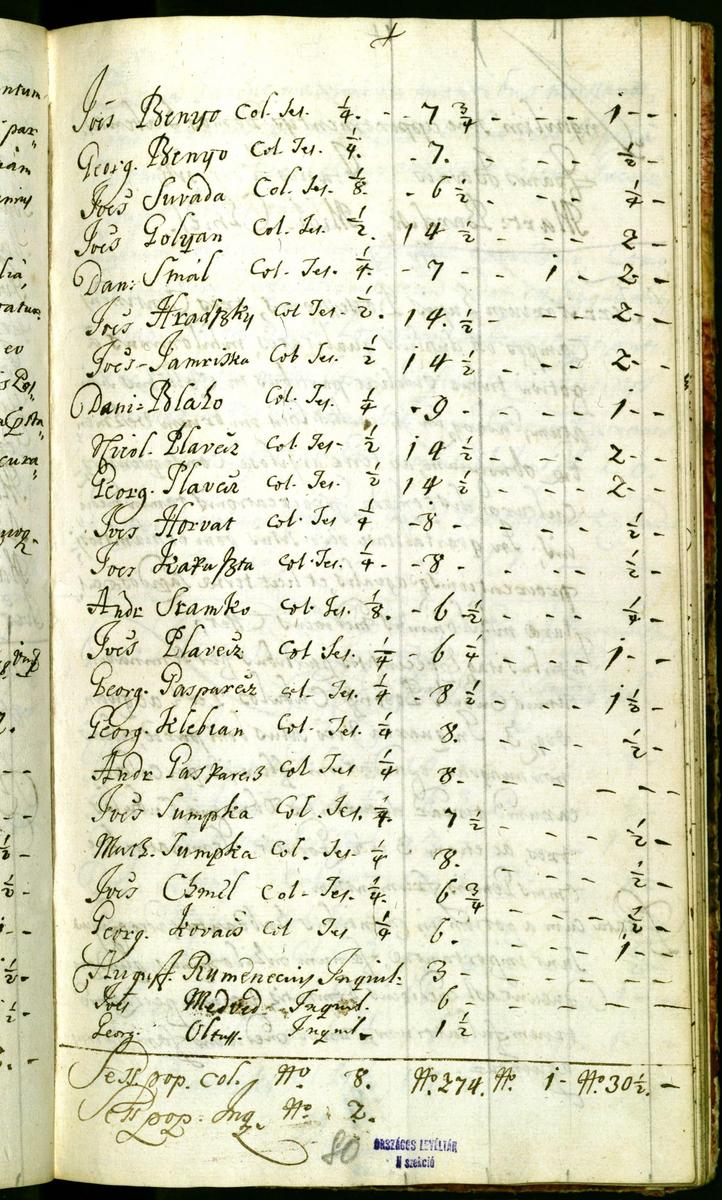 Joēs Benyo Col. Ses. 1/4. - - 7 3/4 - - - 1 - -
Georg. Benyo Col Ses. 1/4. - 7. - - - 1/2 -
Joēs Suvada Col. Ses. 1/8. - 6 1/2 - - - 1/4 -
Joēs Golyan Col. Ses. 1/2. 14 1/2 - - - 2 -
Dan: Smàl Col. Ses. 1/4. - 7 - - 1 - 2 -
Joēs Hradszky Col Ses. 1/2. 14. 1/2 - - - 2 -
Joēs Jamriska Col Ses. 1/2 14 1/2 - - - 2 -
Dani: Blaho Col. Ses. 1/4 - 9 - - - 1 - -
Nicol. Plavecz Col. Ses. 1/2 14 1/2 - - - 2 -
Georg. Plavecz Col. Ses. 1/2 14 1/2 - - - 2 -
Joēs Horvat Col. Ses 1/4 - 8 - - - 1/2 -
Joēs Kapuszta Col. Ses. 1/4 - - 8 - - - 1/2 -
Andr Stamko Col. Ses. 1/8. - 6 1/2 - - - 1/4 -
Joēs Plavecz Col. Ses. 1/4 - 6 1/4 - - - 1 - -
Georg. Gasparecz Col. Ses. 1/4 - 8 1/2 - - - 1 1/2 -
Georg. Klebian Col. Ses. 1/4 8. - - - 1/2 -
Andr Gasparecz Col Ses 1/4 8 - - - - - -
Joēs Sumpka Col. Ses. 1/4. 7 1/2 - - - 1/2 -
Math. Sumpka Col. Ses. 1/4 8. - - - 1/2 -
Joēs Chmel Col. Ses. 1/4. 6 3/4 - - - 1/2 -
Georg. Kovacs Col Ses 1/4 6. - - - 1 - -
August. Rumenecius Inquil. 3 - - - - - -
Joēs Medved Inquil. 6 - - - - - -
Georg. Inquil. 1 1/2
Sess. pop. Col. No 8. No. 274. No. 1 - No. 30 1/2. -
Sess. pop. Inq. No 2.
80
ORSZÁGOS LEVÉLTÁR
N szekció